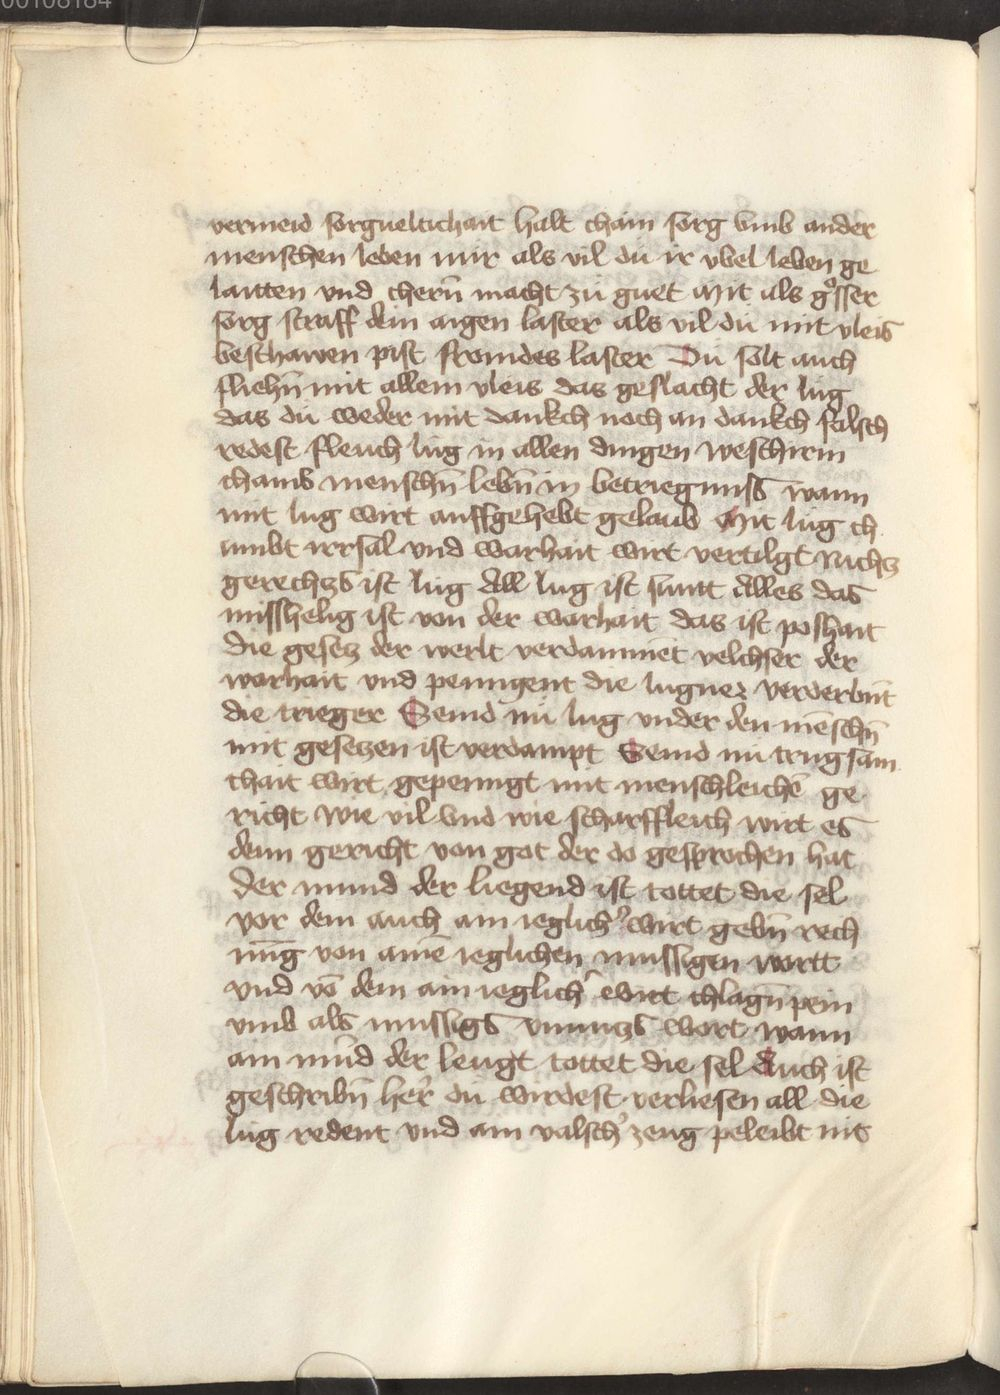 00108184
vermeid sorgueltichait halt chain sorg vmb ander
menschen leben nur als vil du ir vbel leben ge
laitten vnd chern̄ macht zu guet Mit als gosser
sorg straff dein aigen laster als vil du mit vleis
beschawen pist fromdes laster Du solt auch
fliehn̄ mit allem vleis das geslacht der lug
das du weder mit dankch noch an dankch falsch
redest fleuch lug in allen dingen weschirm
chains menschn̄ lebn̄ in betriegnuss wann
mit lug wirt auffgehebt gelaub Mit lug ch
umbt irrsal vnd warhait wirt vertilgt Nichtz
gerechtzs ist lug All lug ist sunt Alles das
misshelig ist von der warhait das ist poshait
die gesetz der werlt verdammēt velchser der
warhait vnd peinigent die lugner verderbnt
die trieger Seind nu lug vnder den mēschn̄
mit gesetzen ist verdampt Seind nu trugsam
chait wirt gepeinigt mit menschleichē ge
richt wie vil vnd wie scharffleich wirt es
denn gericht von got der do gesprochen hat
der mund der liegend ist tottet die sel
vor dem auch ain ieglich' wirt gebn̄ rech
nūg von ainē ieglichen mussigen wortt
vnd vō dem ain ieglich' wirt chlagn̄ pein
vmb als mussigs vnnutzs wort wann
ain mūd der leugt tottet die sel Auch ist
geschribn̄ her' du wirdest verliesen all die
lug redent vnd ain valsch' zeug peleibt nit